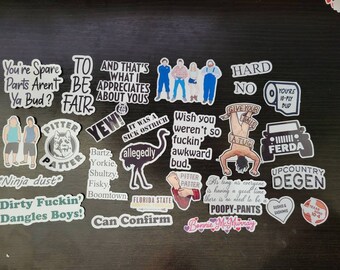 You're Spare
Parts Aren't
Ya Bud?
TO
BE
FAIR
AND THAT'S
WHAT I
APPRECIATES
ABOUT YOU
HARD
NO
YEW!
IT WAS A
SICK OSTRICH
allegedly
Wish you
weren't so
fuckin'
awkward
bud.
GIVE YER
FERDA
PITTER
PATTER
"Ninja dust"
Barts,
Yorkie,
Shultzy,
Fisky,
Boomtown
PITTER
PATTER
UPCOUNTRY
DEGEN
Dirty Fuckin'
Dangles Boys!
FLORIDA STATE
Can Confirm
POOPY-PANTS
Bonnie McMurray